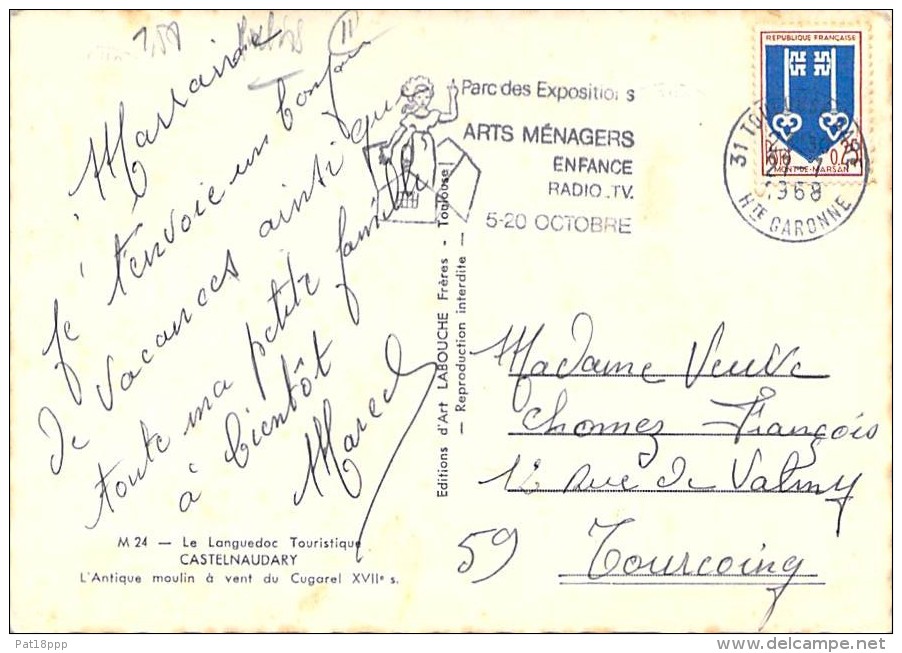 1,50
11
Marraine
Je t'envoie un bonjour
de vacances ainsi que
toute ma petite famille
à bientôt
Marcel
M 24 — Le Languedoc Touristique
CASTELNAUDARY
L'Antique moulin à vent du Cugarel XVIIe s.
Editions d'Art LABOUCHE Frères - Toulouse
— Reproduction interdite —
Parc des Expositions
ARTS MÉNAGERS
ENFANCE
RADIO .TV.
5-20 OCTOBRE
REPUBLIQUE FRANÇAISE
0,25
MONT-DE-MARSAN
31 TOU
1968
HTE GARONNE
Madame Veuve
Chomez François
12 rue de Valmy
59 Tourcoing
Pat18ppp
www.delcampe.net